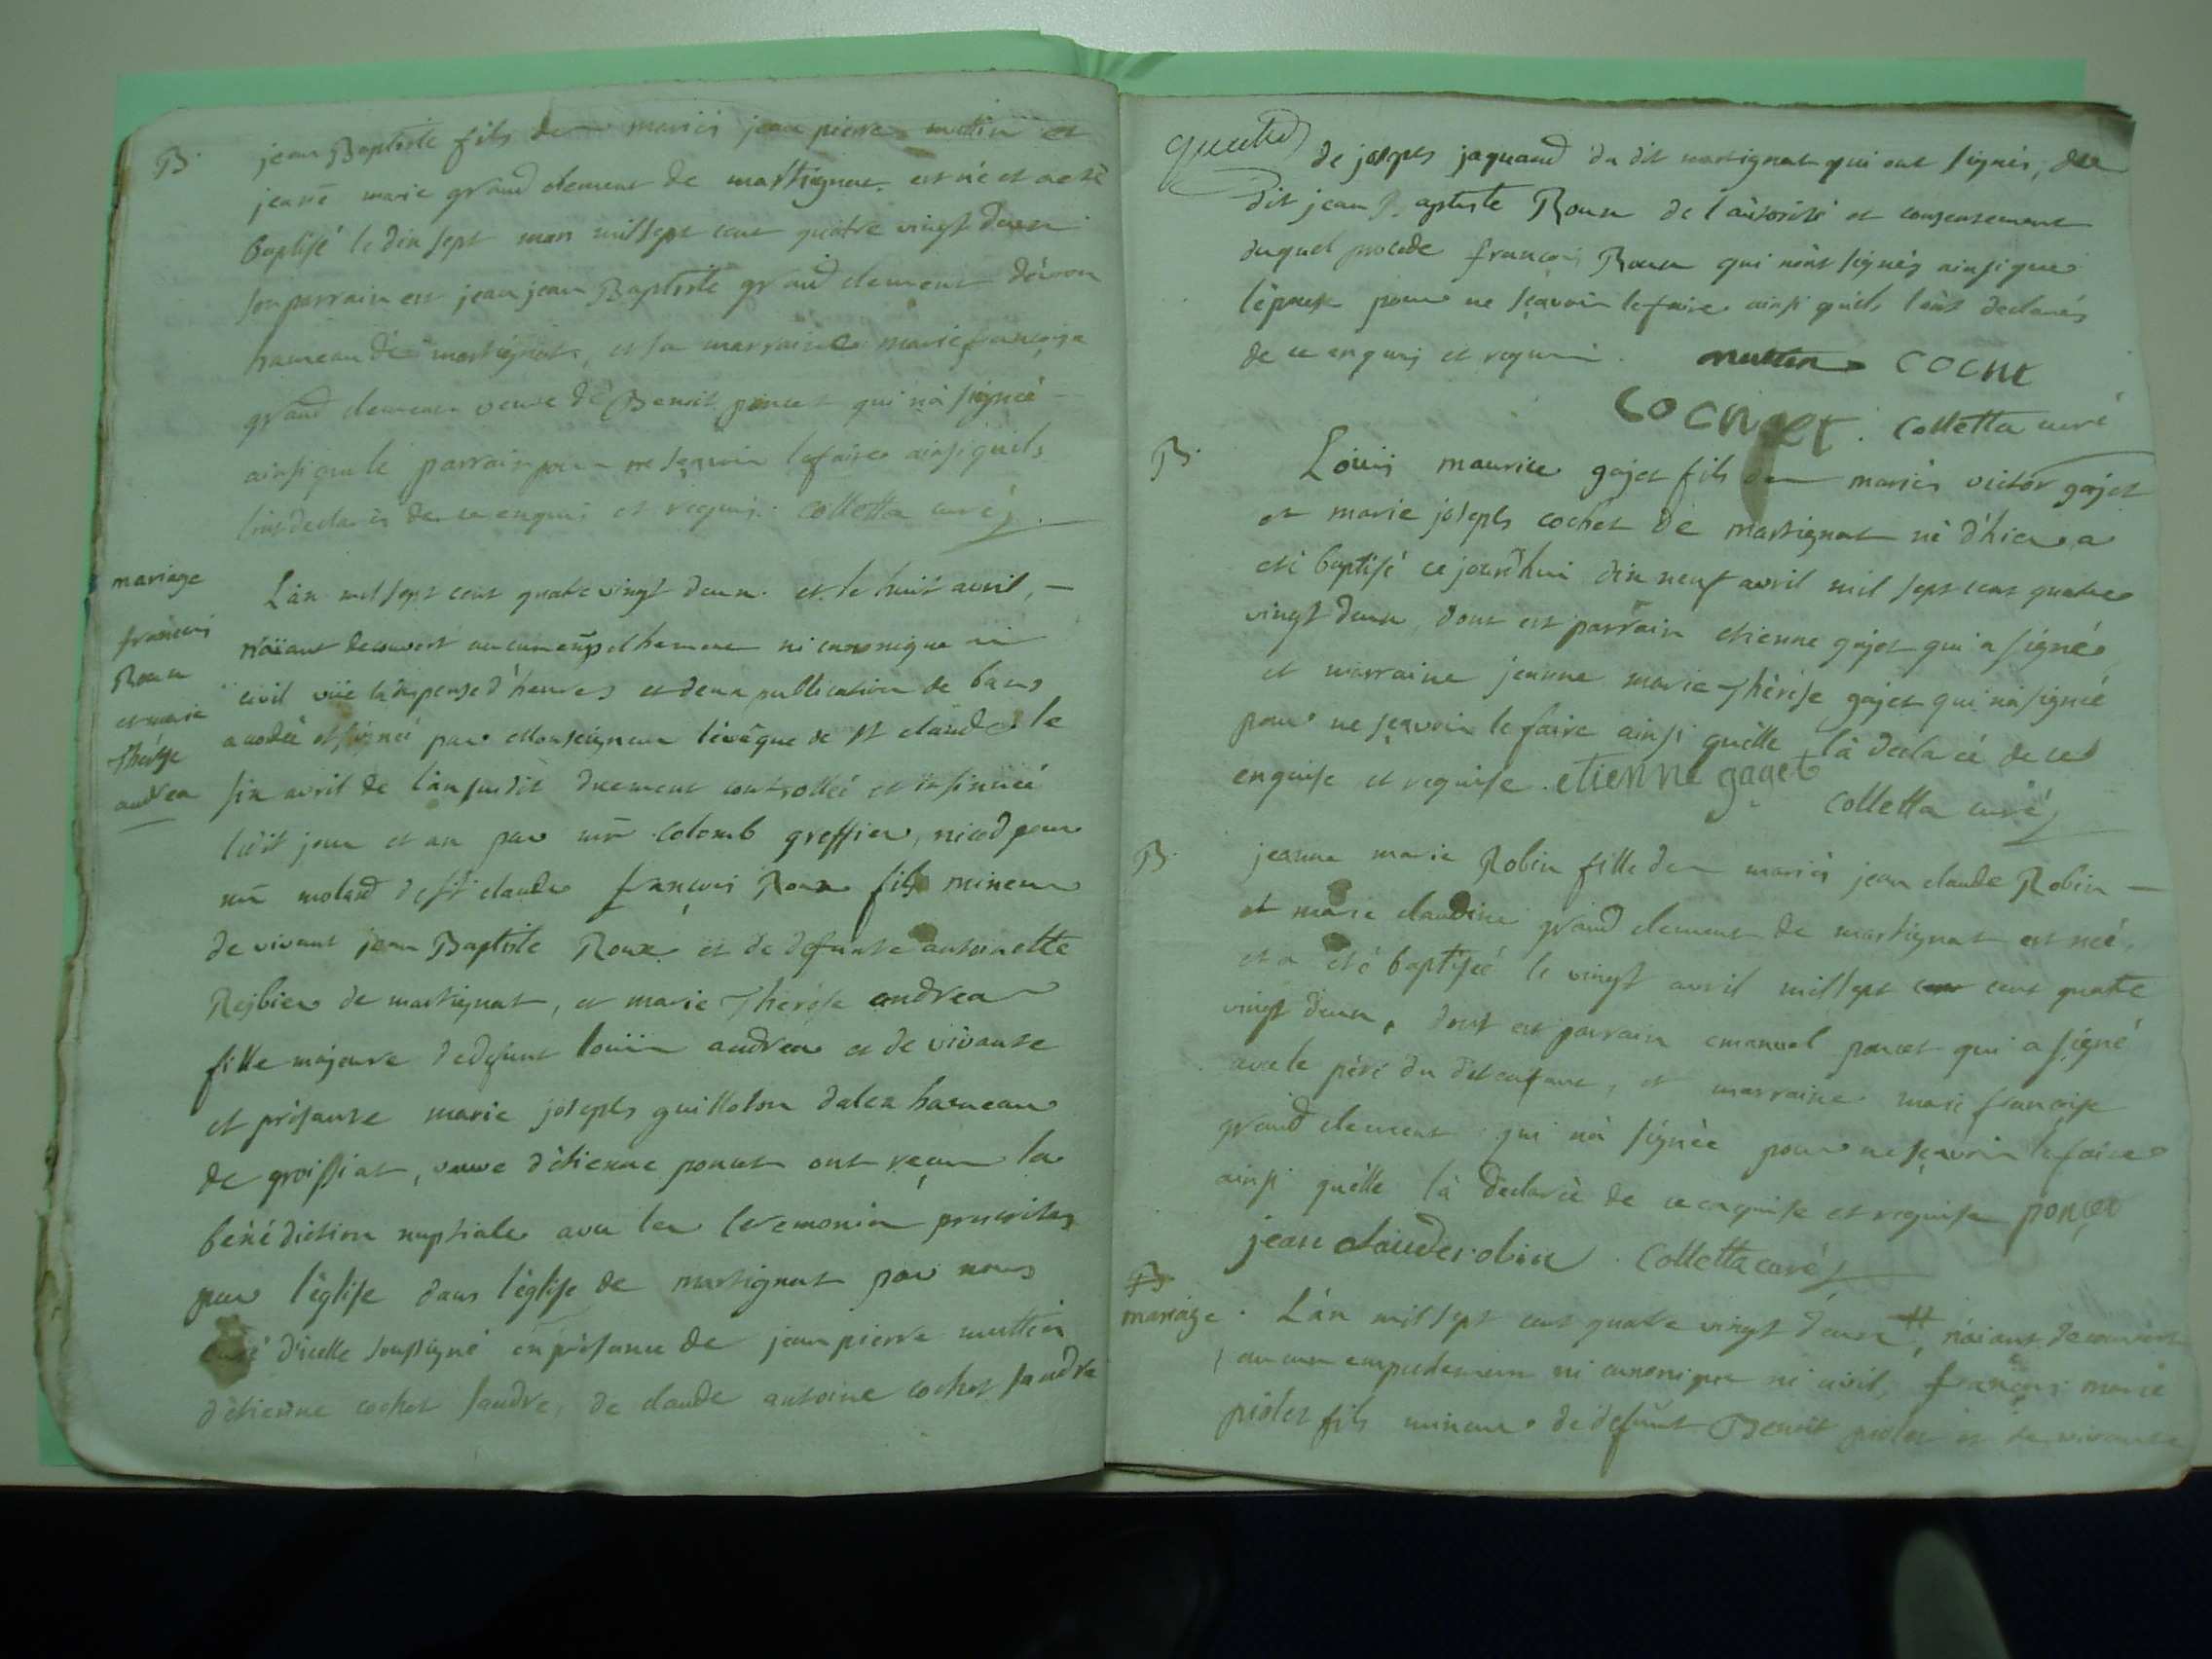 B. jean Baptiste fils des mariés jean pierre mottin et
jeanē marie grand clement de martignat est né et a eté
baptisé le dix sept mars mil sept cent quatre vingt deux
son parrain est jean jean Baptiste grand clement
hameau de martignat, et sa marraine marie françoise
grand clement veuve de Benoit poncet qui n'a signée
ainsi que le parrain pour ne sçavoir le faire ainsi quils
de ce enquis et requis. Colletta curé
mariage
françois
Roux
et marie
thérèse
andrea
L'an mil sept cent quatre vingt deux et le huit avril,
n'aïant decouvert aucun empechement ni canonique ni
civil vüe la dispense d'heures et deux publication de bans
accodée et signée par Monseigneur l'évêque de St claude le
six avril de l'an susdit duement controllée et insinuée
jour et an par mr̄ colomb greffier, nicod pour
mr̄ moland de st claude françois Roux fils mineur
de vivant jean Baptiste Roux et de defunte antoinette
Rejbier de martignat, et marie Therèse andrea
fille majeure de defunt loüis andrea et de vivante
et présante marie joseph guilloton d'alex hameau
de groissiat, veuve d'étienne poncet ont reçu la
bénédiction nuptiale avec les ceremonies prescrites
par l'église dans l'église de martignat par nous
curé d'icelle soussigné en présance de jean pierre muttin
d'étienne cochet sandre, de claude antoine cochet sandre
de joseph jaquand du dit martignat qui ont signés, du
dit jean Baptiste Roux de l'autorité et consentement
duquel procede françois Roux qui n'ont signés ainsi que
l'épouse pour ne sçavoir le faire ainsi quils l'ont declarés
de ce enquis et requis. muttin COCHE
COCHET. Colletta curé
B. Loüis maurice gajet fils des mariés victor gajet
et marie joseph cochet de martignat né d'hier a
eté baptisé ce jourd'hui dix neuf avril mil sept cent quatre
vingt deux, dont est parrain etienne gajet qui a signé
et marraine jeanne marie Thérèse gajet qui n'a signée
pour ne sçavoir le faire ainsi quelle l'a declaré de ce
enquise et requise. etienne gaget
Colletta curé
B. jeanne marie Robin fille des mariés jean claude Robin
et marie claudine grand clement de martignat est née
et a eté baptisée le vingt avril mil sept cent quatre
vingt deux, dont est parrain emanuel poncet qui a signé
avec le père du dit enfant, et marraine marie françoise
grand clement qui n'a signée pour ne sçavoir le faire
ainsi qu'elle l'a déclarée de ce enquise et requise ponçet
jean clauderobin. Colletta curé
mariage. L'an mil sept cent quatre vingt deux #, n'aiant decouvert
aucun empechement ni canonique ni civil, françois marie
piolet fils mineur de defunt Benoit piolet et de vivante